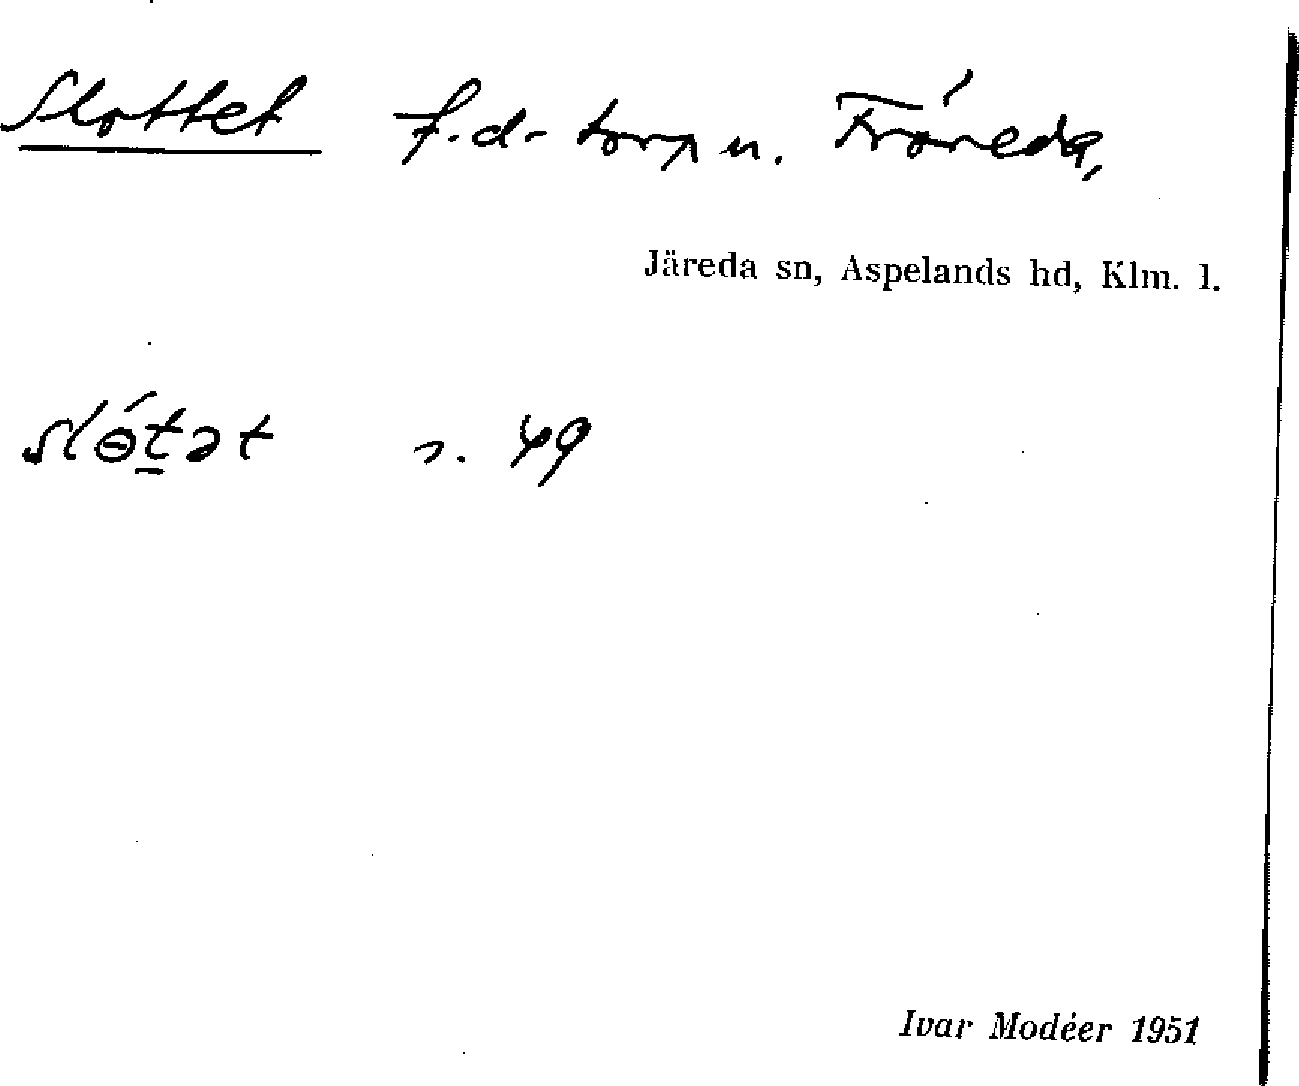 Slottet f.d. torp u. Fröreda,
Järeda sn, Aspelands hd, Klm. l.
slɵ́t̲ət s. 49
Ivar Modéer 1951